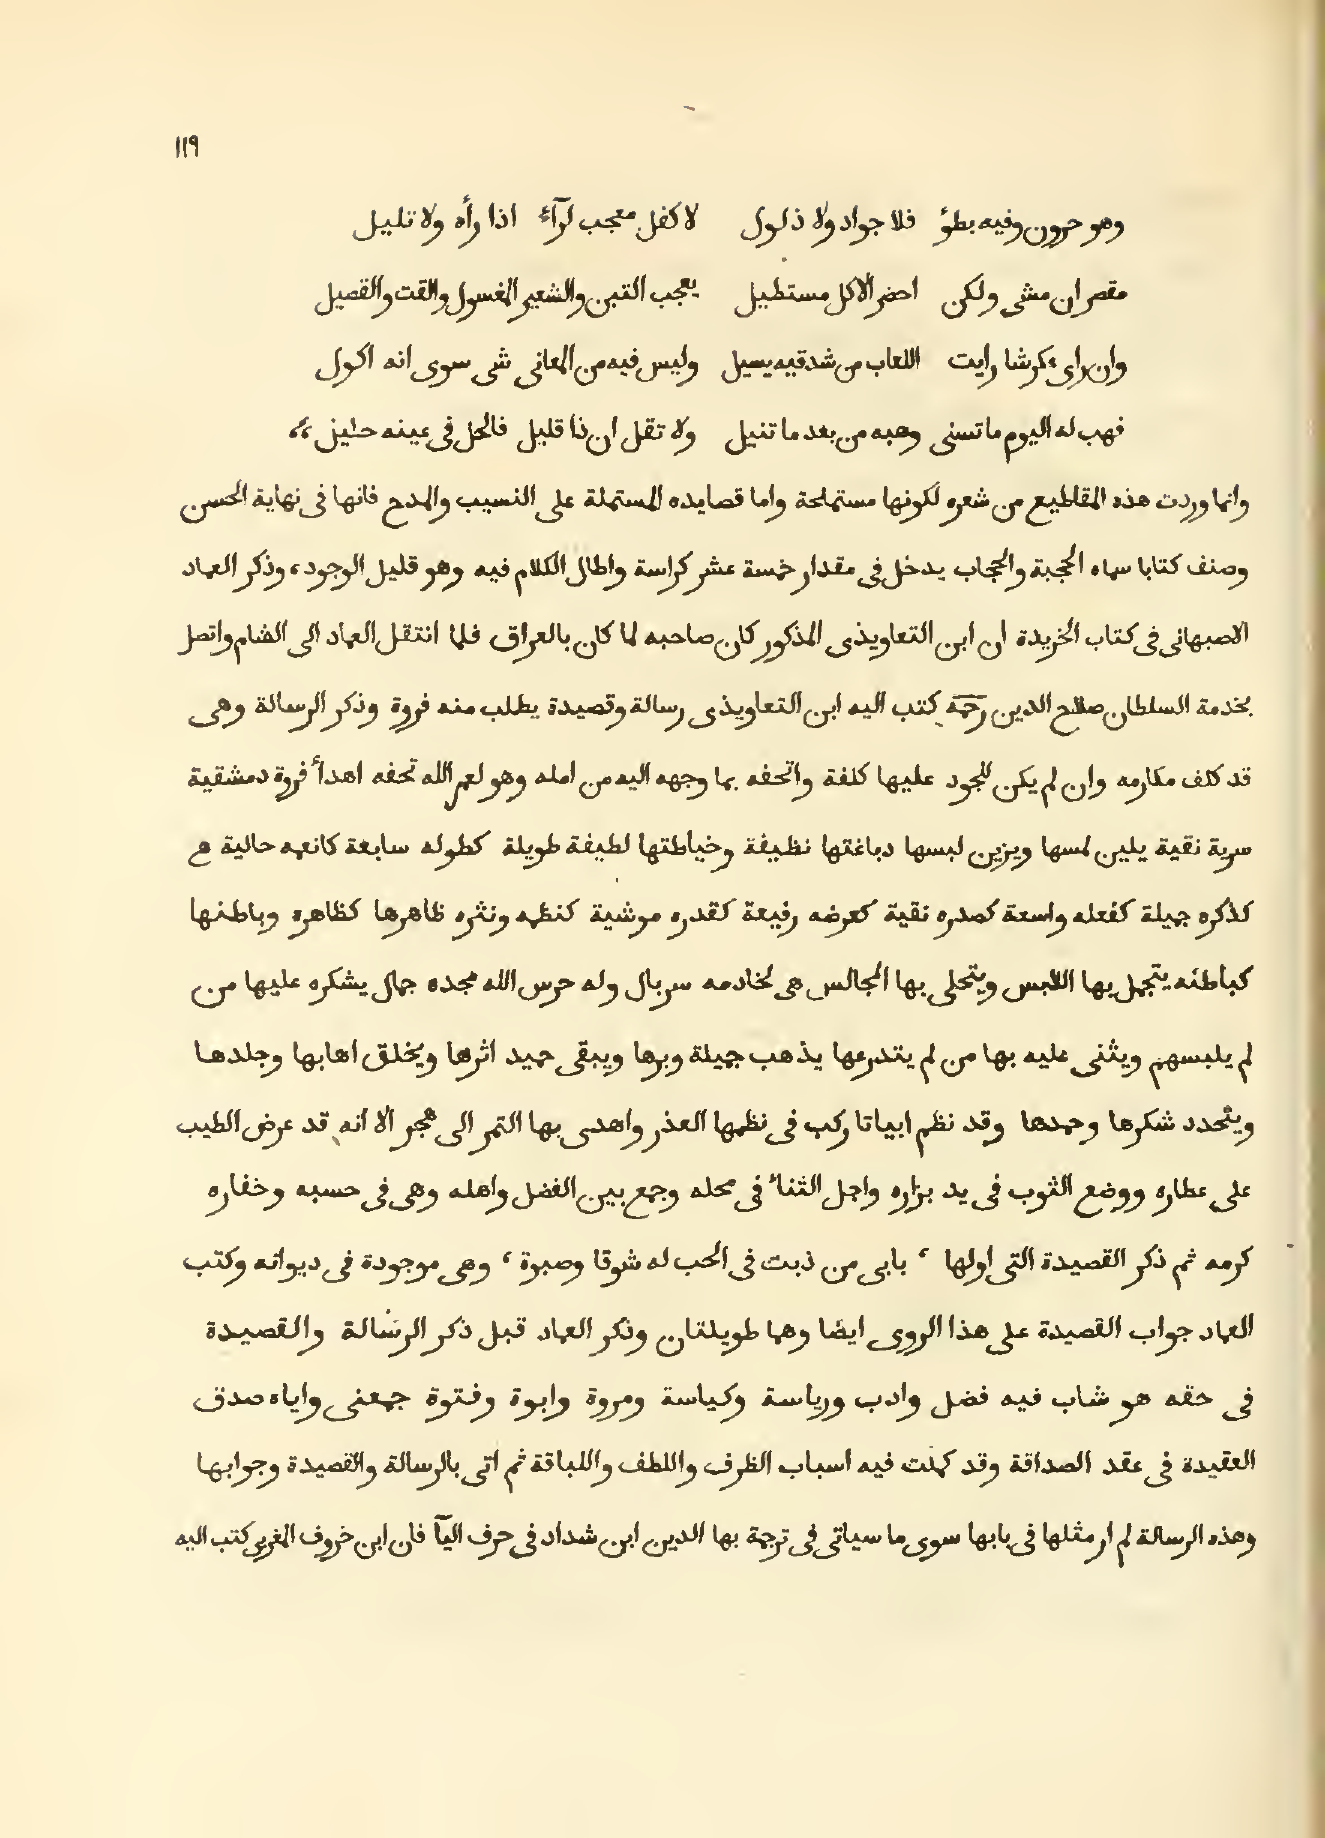 ١١٩
وهو حرون وفيه بطؤ فلا جواد ولا ذلول لا كفل معجب لرآءٔ اذا رأه ولا تليل
مقصر ان مشى ولكن احضر الاكل مستطيل يعجب التبن والشعير المغسول والقت والقصيل
وان راى عكرشا رأيت اللعاب من شدقيه يسيل وليس فيه من المعانى شى سوى انه اكول
فهب له اليوم ما تسنى وهبه من بعد ما تنيل ولا تقل ان ذا قليل فالجل فى عينه جليل ،،
وانما وردت هذه المقاطيع من شعره لكونها مستملحة واما قصايده المستملة على النسيب والمدح فانها فى نهاية الحسن
وصنف كتابا سماه الحجبة والحجاب يدخل فى مقدار خمسة عشر كراسة واطال الكلام فيه وهو قليل الوجود، وذكر العماد
الاصبهانى فى كتاب الخريدة ان ابن التعاويذى المذكور كان صاحبه لما كان بالعراق فلما انتقل العماد الى الشام واتصل
بخدمة السلطان صلاح الدين رحمه كتب اليه ابن التعاويذى رسالة وقصيدة يطلب منه فروة وذكر الرسالة وهى
قد كلف مكارمه وان لم يكن للجود عليها كلفة واتحفه بما وجهه اليه من امله وهو لعمر الله تحفه اهدأ فروة دمشقية
سرية نقية يلين لمسها ويزين لبسها دباغتها نظيفة وخياطتها لطيفة طويلة كطوله سابعة كانعمه حالية
كذكره جميلة كفعله واسعة كصدره نقية كعرضه رفيعة كقدره موشية كنظمه ونثره ظاهرها كظاهره وباطنها
كباطنه يتجمل بها اللابس ويتحلى بها المجالس هى لخادمه سربال وله حرس الله مجده جمال يشكره عليها من
لم يلبسهم ويثنى عليه بها من لم يتدرعها يذهب جميلة وبرها ويبقى حميد اثرها ويخلق اهابها وجلدها
ويتجدد شكرها وحمدها وقد نظم ابياتا ركب فى نظمها العذر واهدى بها التمر الى هجر الا انه قد عرض الطيب
على عطاره ووضع الثوب فى يد بزاره واجل الثناء فى محله وجمع بين الفضل واهله وهى فى حسبه وخفاره
كرمه ثم ذكر القصيدة التى اولها ، بابى من ذبت فى الحب له شوقا وصبوة ، وهى موجودة فى ديوانه وكتب
العماد جواب القصيدة على هذا الروى ايضا وهما طويلتان وذكر العماد قبل ذكر الرسالة والقصيدة
فى حقه هو شاب فيه فضل وادب ورياسة وكياسة ومروة وابوة وفتوة جمعنى واياه صدق
العقيدة فى عقد الصداقة وقد كملت فيه اسباب الظرف واللطف واللباقة ثم اتى بالرسالة والقصيدة وجوابها
وهذه الرسالة لم ار مثلها فى بابها سوى ما سياتى فى ترجمة بها الدين ابن شداد فى حرف اليآ فان ابن خروف المغربى كتب اليه